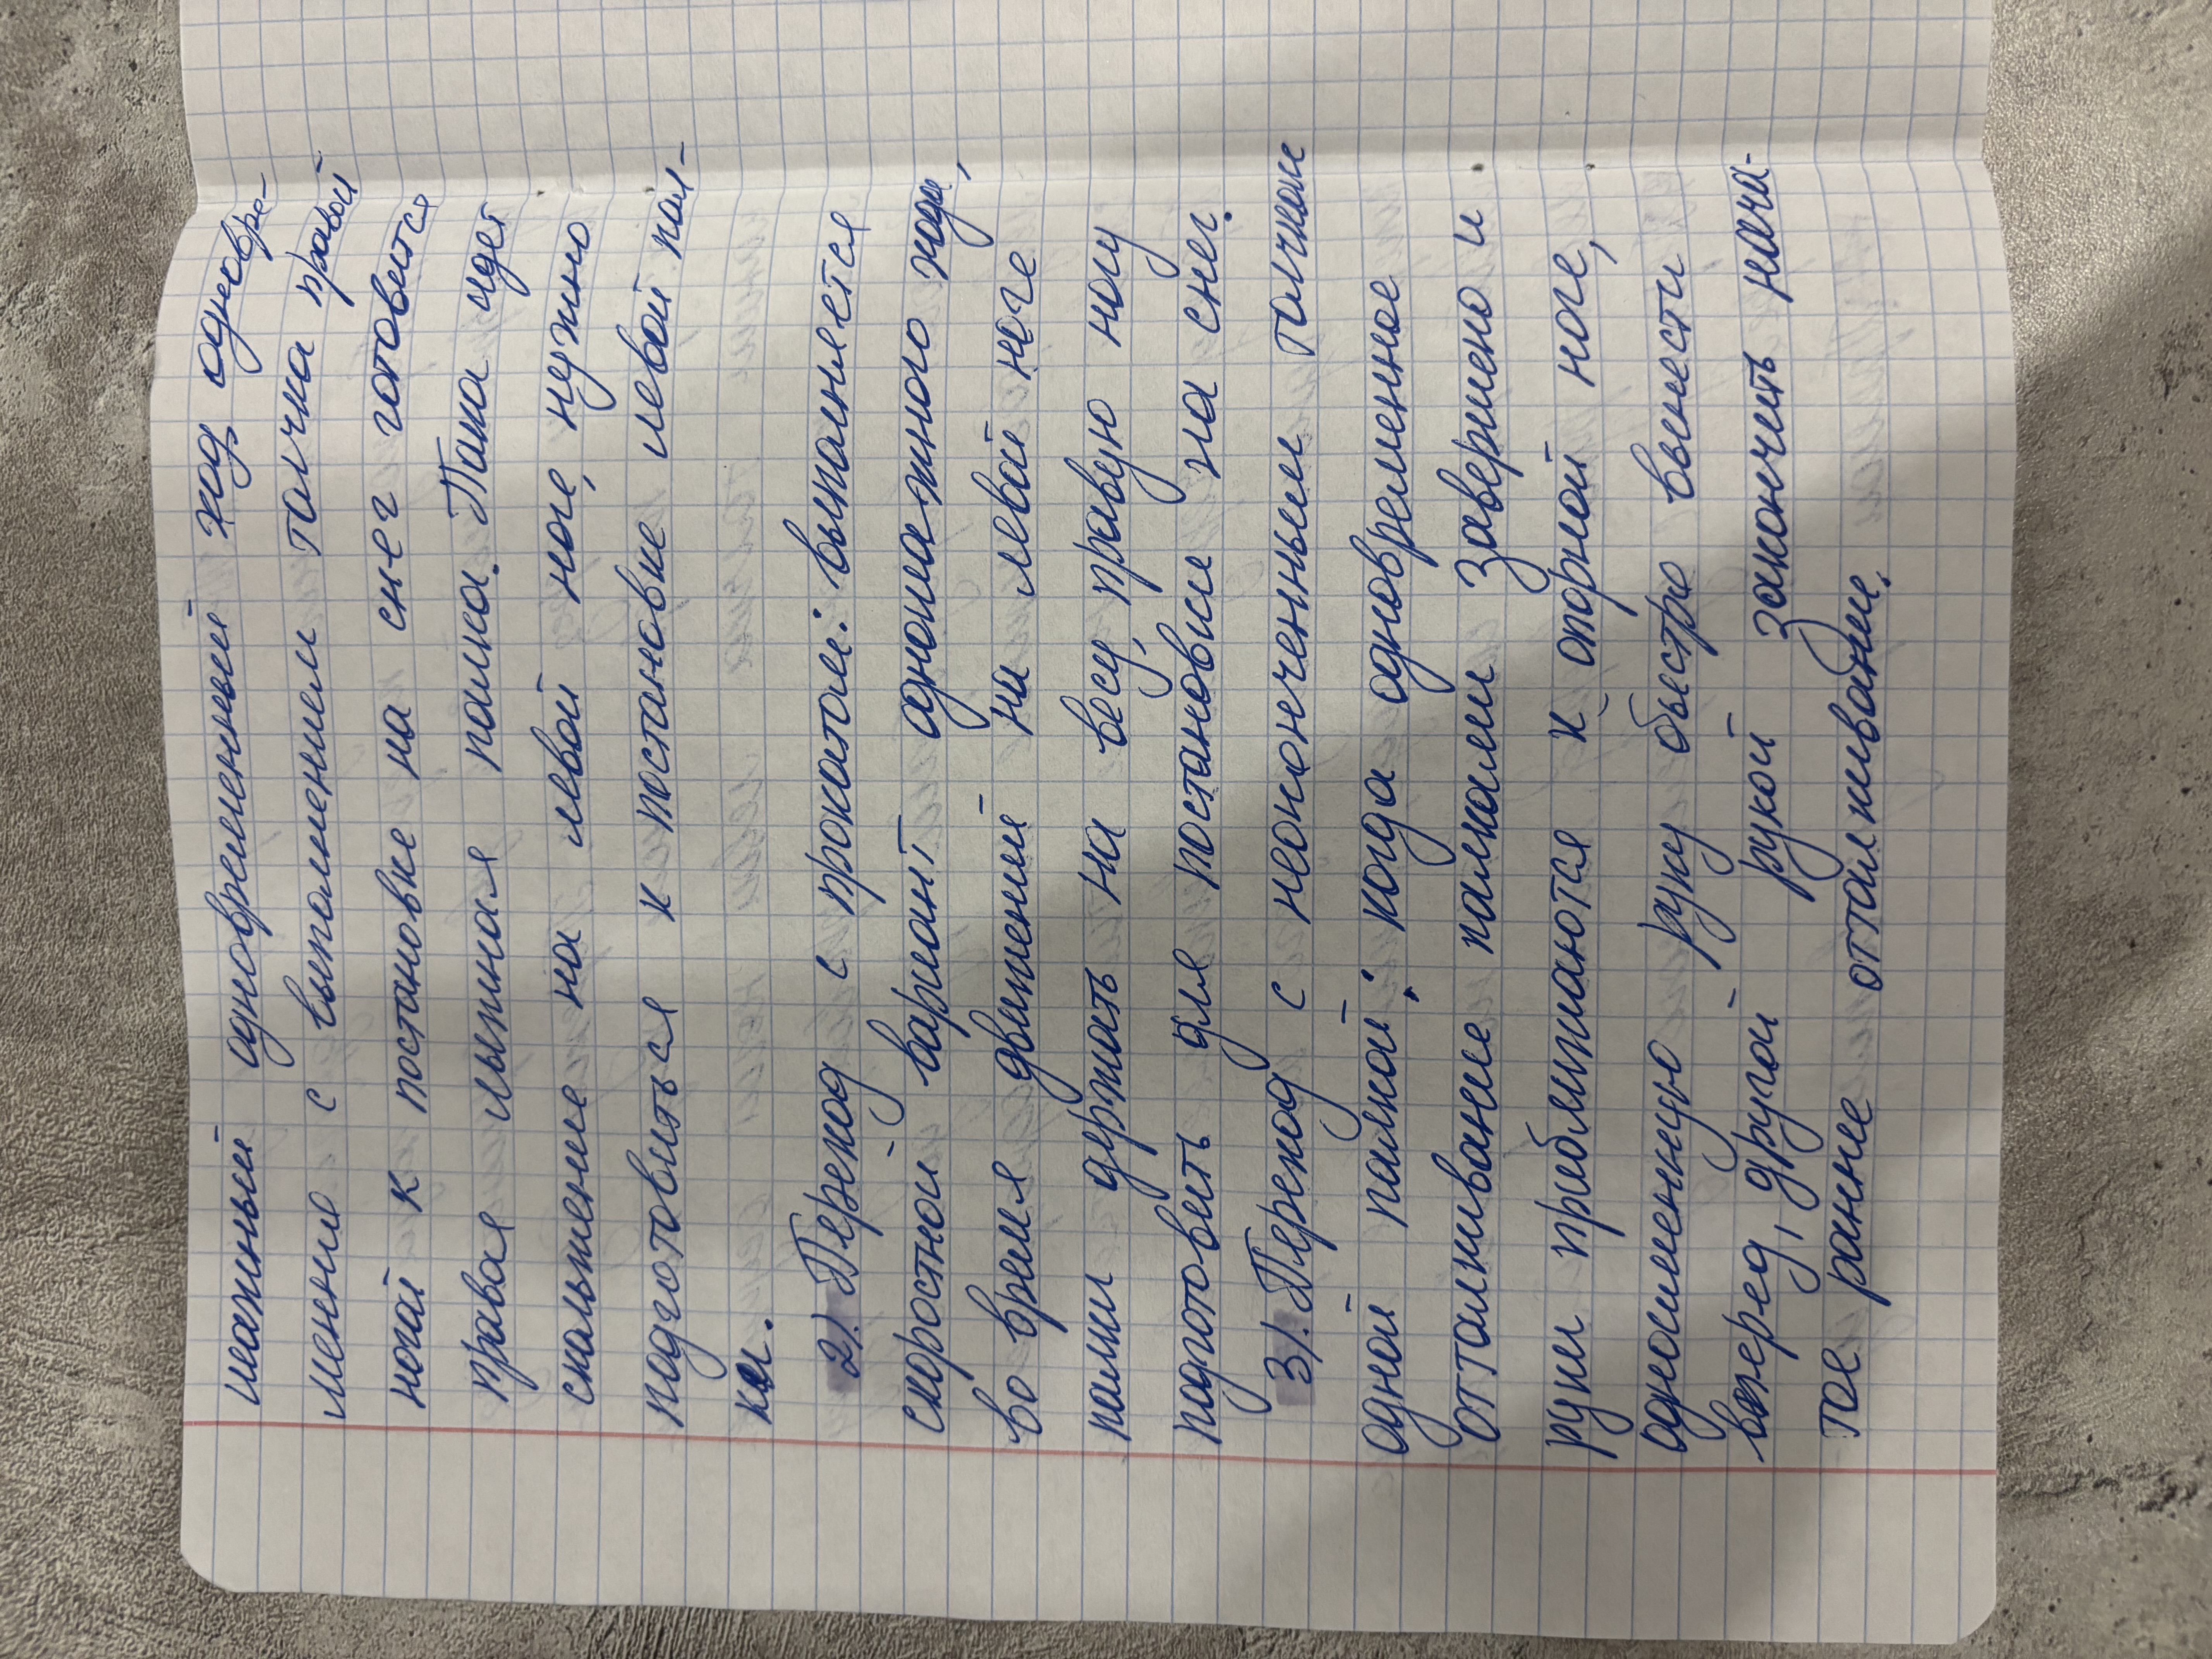 шажный одновременный ход одновре-
менно с выполнением толчка правой
ногой к постановке на снег готовится
правая лыжная палка. Пока идет
скольжение на левой ноге, нужно
подготовиться к постановке левой пал-
ки.
2). Переход с прокатом: выполняется
скоростной вариант одношажного хода,
во время движений на левой ноге
палки держать на весу, правую ногу
подготовить для постановки на снег.
3). Переход с неоконченным толчком
одной палкой: когда одновременное
отталкивание палками завершено и
руки приближаются к опорной ноге,
одноименную руку быстро вынести
вперед, другой рукой закончить нача-
тое ранне отталкивание.